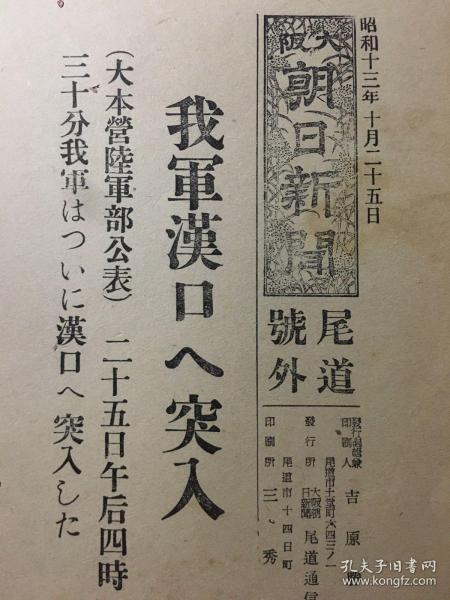 昭和十三年十月二十五日
大阪
朝日新聞
尾道
號外
發行編輯兼
印刷人 吉原
尾道市土堂町六四三ノ一
發行所 大阪朝日新聞 尾道通信
尾道市十四日町
印刷所 三秀
我軍漢口へ突入
(大本營陸軍部公表) 二十五日午后四時
三十分我軍はついに漢口へ突入した
孔夫子旧书网
kongfz.com